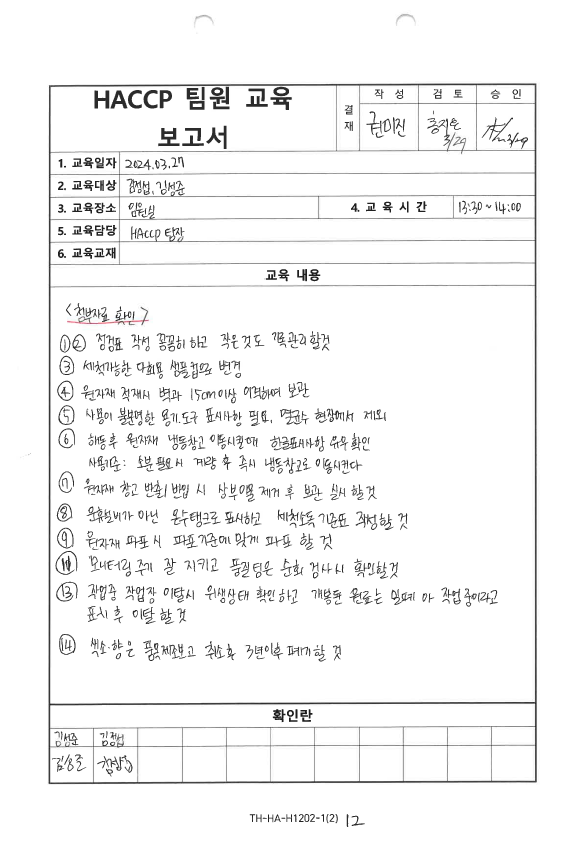 HACCP 팀원 교육
보고서
결재
작 성
검 토
승 인
권미진
홍지은
3/29
3/29
1. 교육일자 2024.03.27
2. 교육대상 김정섭, 김성준
3. 교육장소 임원실
4. 교 육 시 간 13:30 ~ 14:00
5. 교육담당 HACCP 팀장
6. 교육교재
교육 내용
<첨부자료 확인>
①② 점검표 작성 꼼꼼히 하고 작은것도 기록관리할것
③ 세척가능한 다회용 샘플컵으로 변경
④ 원자재 적재시 벽과 15cm이상 이격하여 보관
⑤ 사용이 불분명한 용기.도구 표시사항 필요, 멸균수 현장에서 제외
⑥ 해동후 원자재 냉동창고 이동시킬때 한글표시사항 유무확인
사용기준: 소분 필요시 계량 후 즉시 냉동창고로 이동시킨다
⑦ 원자재 창고 반출/반입 시 상부이물 제거 후 보관 실시 할것
⑧ 유휴설비가 아닌 온수탱크로 표시하고 세척소독기준표 작성할 것
⑨ 원자재 파포시 파포기준에 맞게 파포 할 것
모니터링 주기 잘 지키고 품질팀은 순회 검사시 확인할것
⑬ 작업중 작업장 이탈시 위생상태 확인하고 개봉된 원료는 밀폐 아 작업중이라고
표시 후 이탈 할 것
⑭ 색소·향은 품목제조보고 취소후 3년이후 폐기할 것
확인란
김성준 김정섭
김성준 김정섭
TH-HA-H1202-1(2) 12